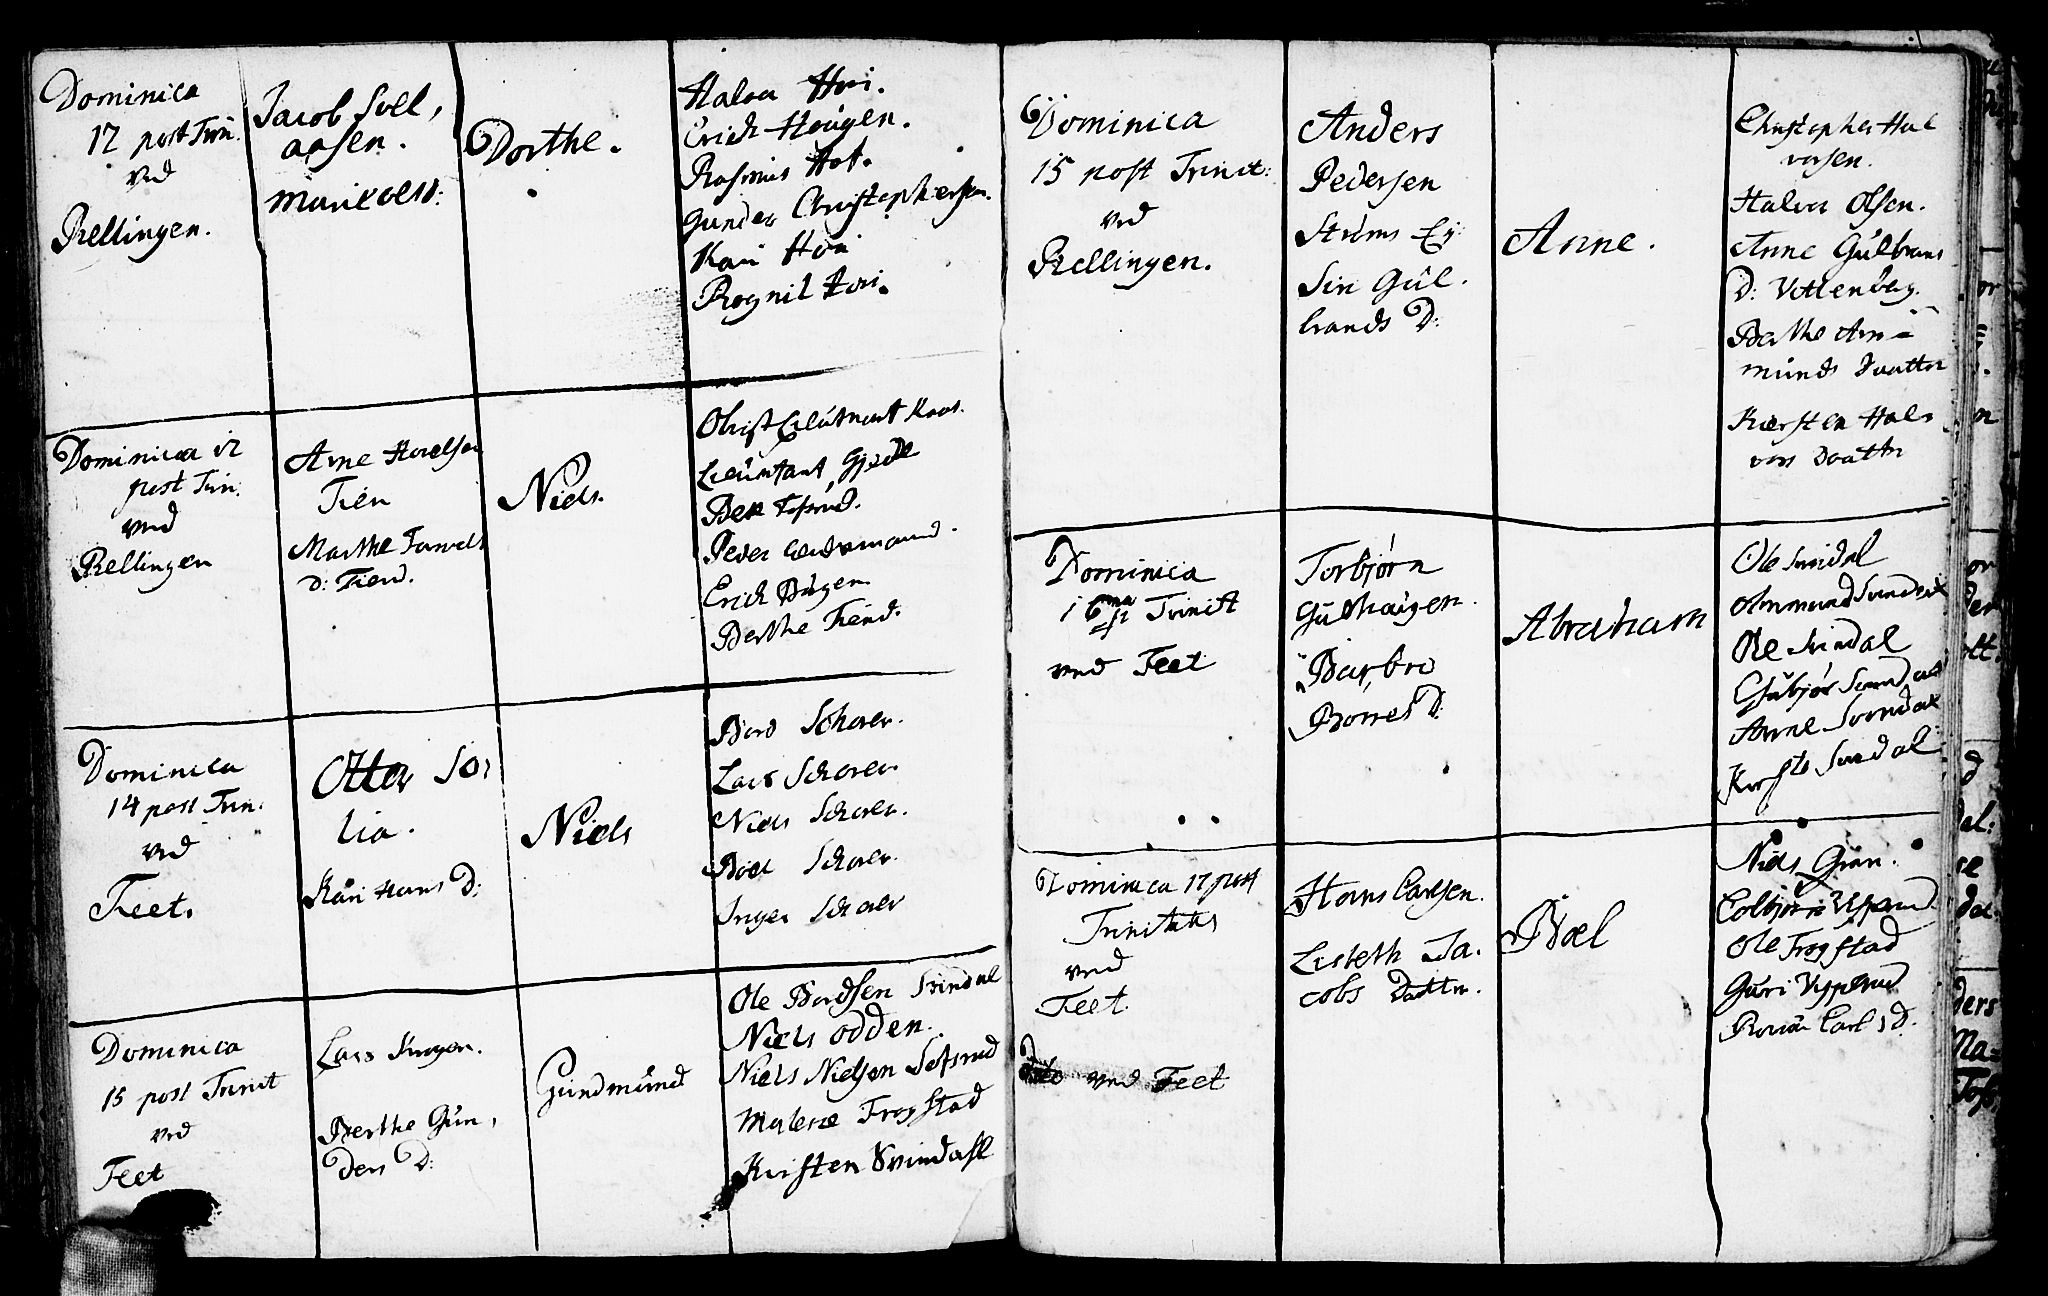 Dominica
17 post Trin.
ved
Rellingen.
Jacob Soll,
aasen.
Dorthe.
Halvor Hvi.
Erich Hougen.
Rasmus Hof.
Gunder Christophersen.
Kari Hvi
Rognil Hvi.
Dominica 12
post Trin:
ved
Rellingen
Arne
Tien
Marthe
D: Tiend.
Niels.
Lieutnant
Peder
Erich Hougen
Berthe Tiend.
Dominica
14 post Trin:
ved
Feet.
Otter So,
lia.
Kari Hans D:
Niels
Bord Scharer.
Lars Scharer.
Niels Scharer.
Boel Scharer.
Inger Scharer
Dominica
15 post Trinit
ved
Feet
Lars
Berthe Gun,
ders D:
Gundmund
Ole Bordsen Svindal
Niels Odden.
Niels Nielsen
Malene Frogstad
Kirsten Svindahl
Dominica
15 post Trinit:
ved
Rellingen.
Anders
Pedersen
Strøms Ej:
Siri Gul.
brands D:
Anne.
Christopher Hal
vorsen.
Halvor Olsen.
Anne Gulbrans
D: Vettenberg.
Berthe Am=
munds Daatter
Kiersten Hal=
vors Daatter
Dominica
16 Trinit
ved Feet
Torbjørn
Gulhaugen.
Barbro
Borres D:
Abraham
Ole Svindal
Ommund Svindal
Ole Svindal
Gubjør Svindal
Anne Svindal
Kirste Svindal
Dominica 17 post
Trinitatis
ved
Feet.
Hans Carlsen.
Lisbeth Ja.
cobs Daatter.
Boel
Niels Gran.
Colbjørn
Ole Frogstad
Guri
Carls D.
Dito ved Feet